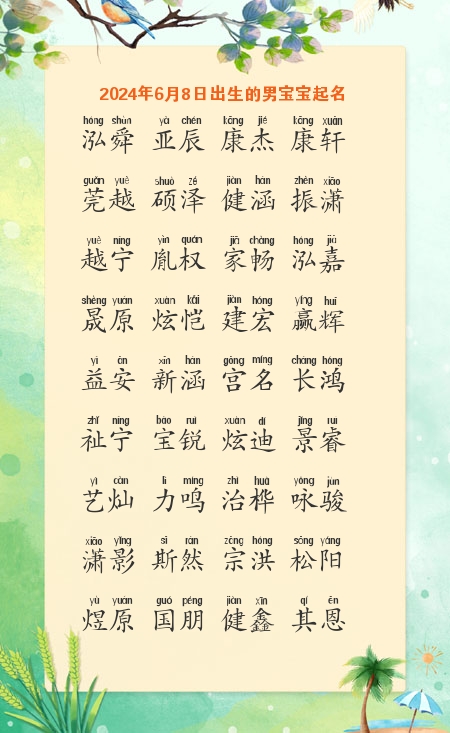 2024年6月8日出生的男宝宝起名
hóng shùn yà chén kāng jié kāng xuān
泓舜 亚辰 康杰 康轩
guān yuè shuò zé jiàn hán zhèn xiāo
莞越 硕泽 健涵 振潇
yuè níng yìn quán jiā chàng hóng jiā
越宁 胤权 家畅 泓嘉
shèng yuán xuàn kǎi jiàn hóng yíng huī
晟原 炫恺 建宏 赢辉
yì ān xīn hán gōng míng cháng hóng
益安 新涵 宫名 长鸿
zhǐ níng bǎo ruì xuàn dí jǐng ruì
祉宁 宝锐 炫迪 景睿
yì càn lì míng zhì huà yǒng jùn
艺灿 力鸣 治桦 咏骏
xiāo yǐng sī rán zōng hóng sōng yáng
潇影 斯然 宗洪 松阳
yù yuán guó péng jiàn xīn qí ēn
煜原 国朋 健鑫 其恩